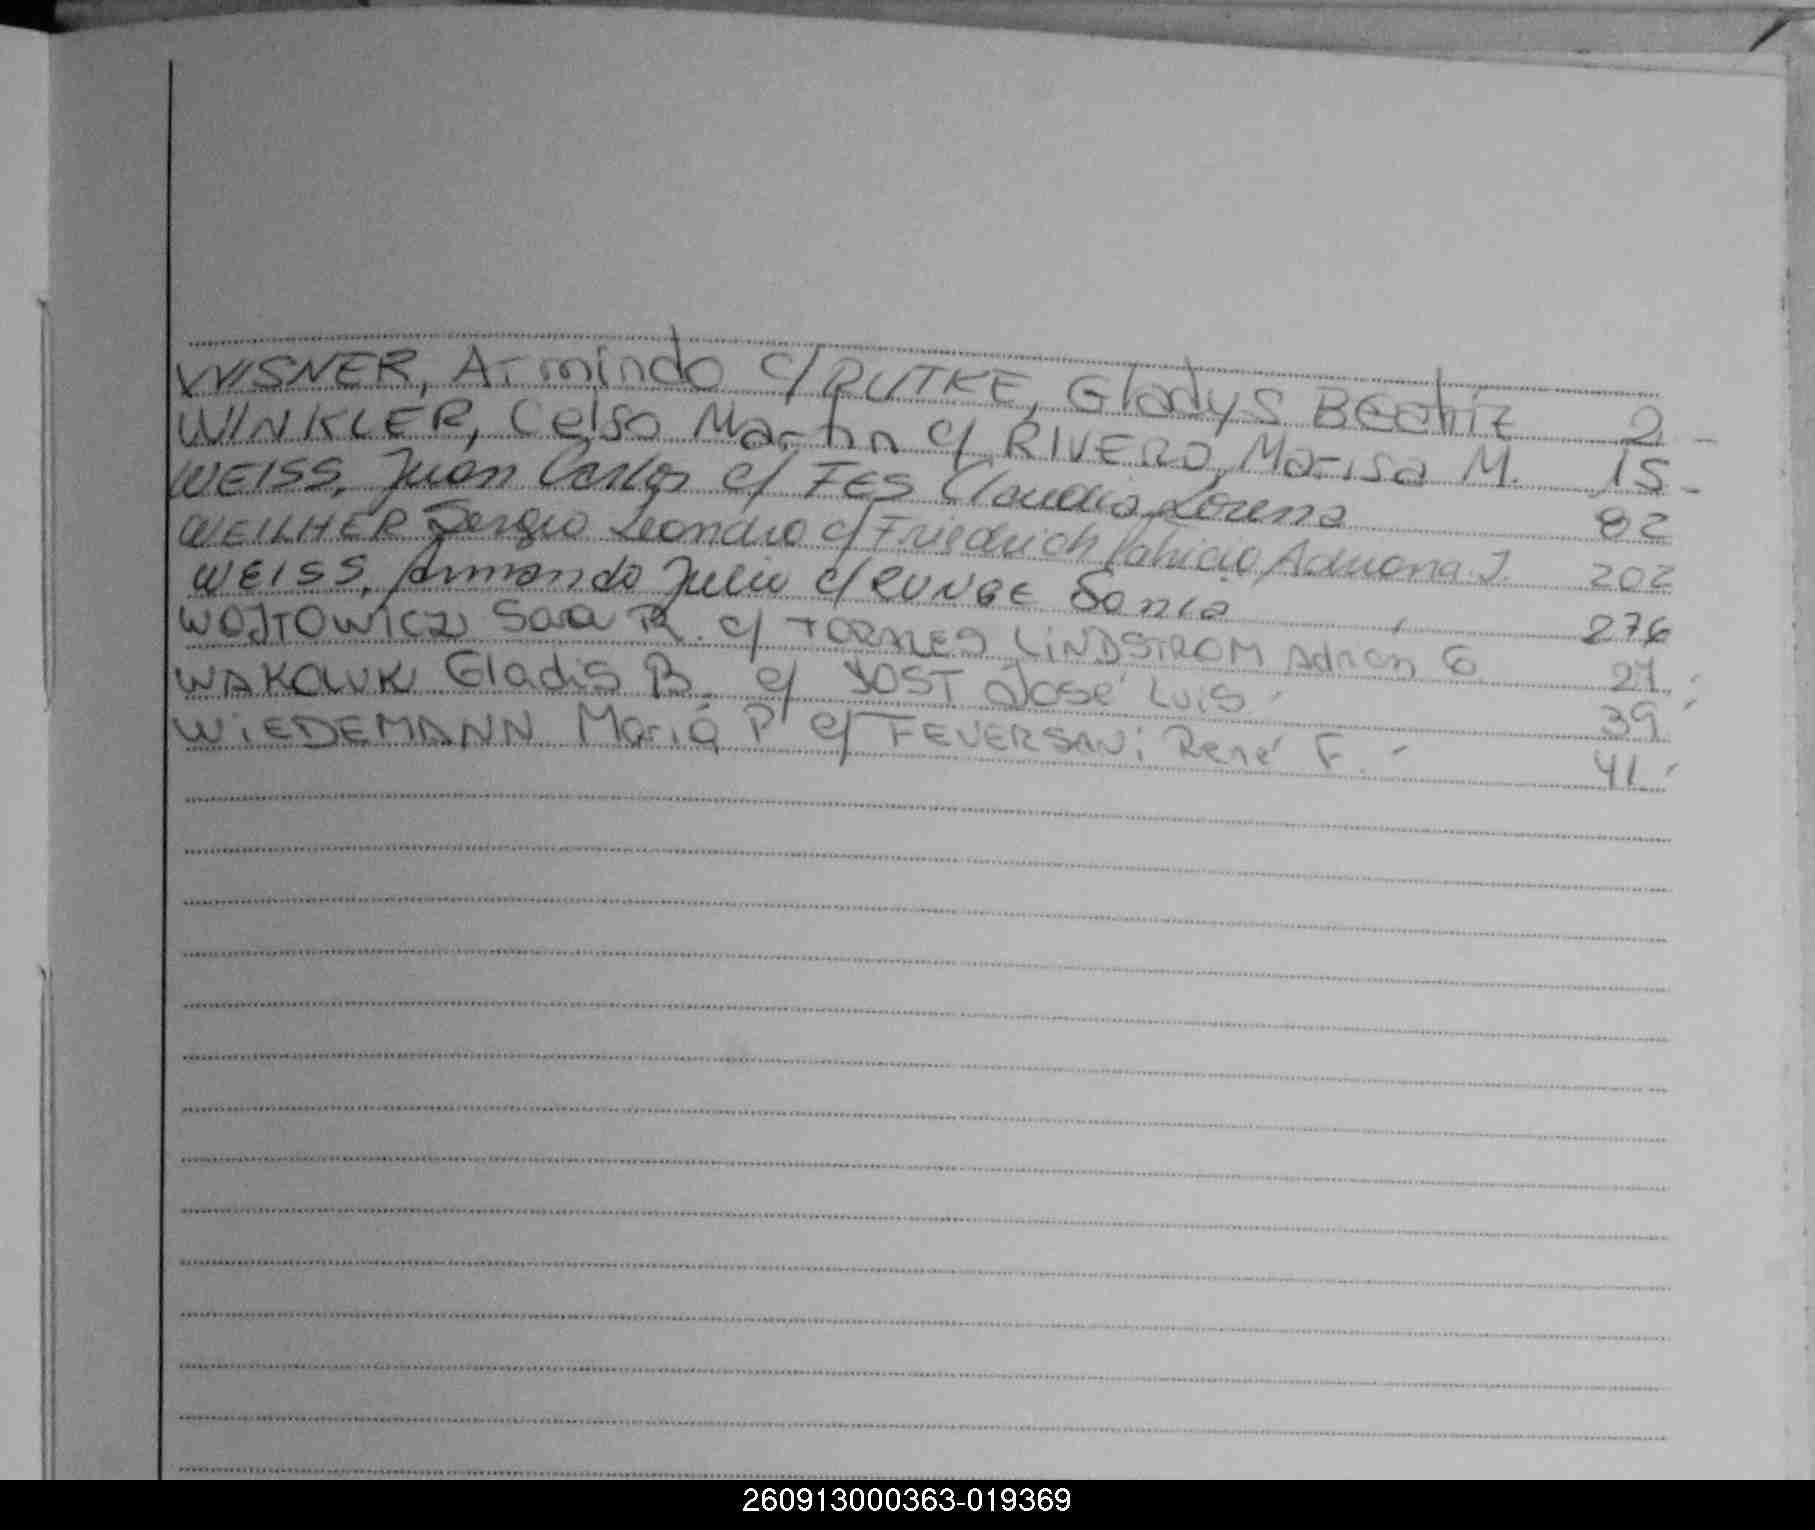 WISNER, Armindo c/ RUTKE, Gladys Beatriz 2 -
WINKLER, Celso Martin c/ RIVERO, Marisa M. 15 -
WEISS, Juan Carlos c/ FES Claudia Lorena 82
WEILHER Sergio Leandro c/ Friedrich Patricia Adriana J. 202
WEISS, Armando Julio c/ RUNGE Sonia 276
WOJTOWICZ Sara R. c/ LINDSTROM Adrian 27
WAKOLUK Gladis B. c/ JOST José Luis 39
WIEDEMANN María P c/ FEVERSANi René F. 41
260913000363-019369